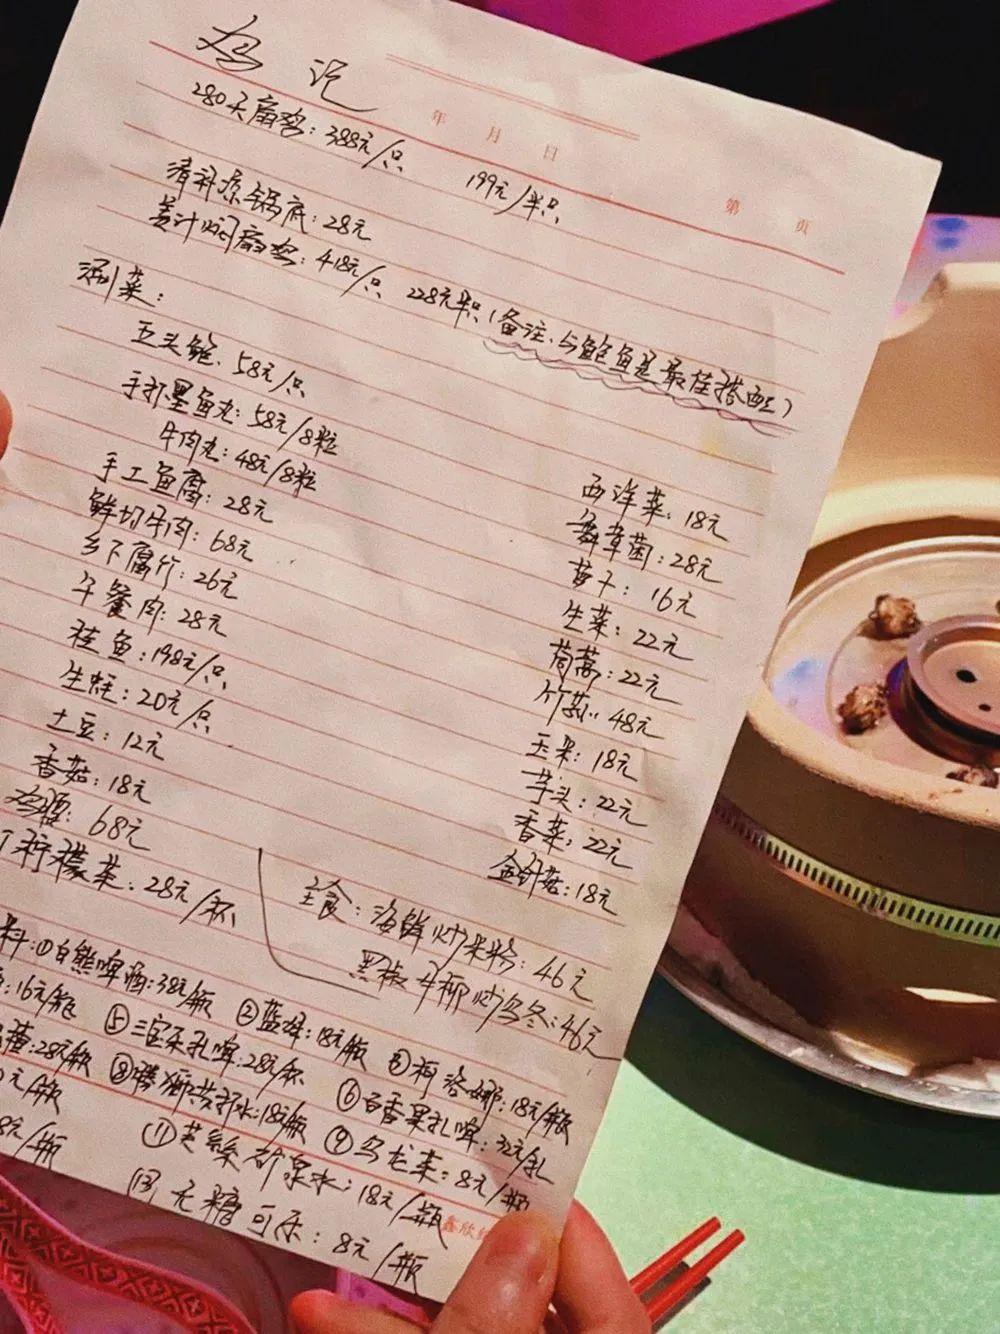 鸡记
年 月 日
第 页
280天扇鸡：388元/只 199元/半只
清补凉锅底：28元
姜汁焖扇鸡：418元/只 228元半只（备注、与鲍鱼是最佳搭配）
涮菜：
五头鲍：58元/只
手打墨鱼丸：58元/8粒
牛肉丸：48元/8粒
手工鱼腐：28元
鲜切牛肉：68元
乡下腐竹：26元
午餐肉：28元
桂鱼：198元/只
生蚝：20元/只
土豆：12元
香菇：18元
68元
柠檬茶：28元/杯
西洋菜：18元
舞草菌：28元
萝卜：16元
生菜：22元
茼蒿：22元
竹荪：48元
玉米：18元
芋头：22元
香菜：22元
金针菇：18元
主食：海鲜炒米粉：46元
黑椒牛柳炒乌冬：46元
料：①白熊啤酒：38元/瓶 ②蓝妹：18元/瓶 ③柯洛娜：18元/瓶
：16元/瓶 ⑤三宝乐扎啤：28元/杯 ⑥百香果扎啤：32元/扎
：28元/瓶 ⑧腾狮苏打水：18元/瓶 ⑨乌龙茶：8元/瓶
元/瓶 ⑪芙丝矿泉水：18元/瓶
8元/瓶 ⑬无糖可乐：8元/瓶
鑫欣